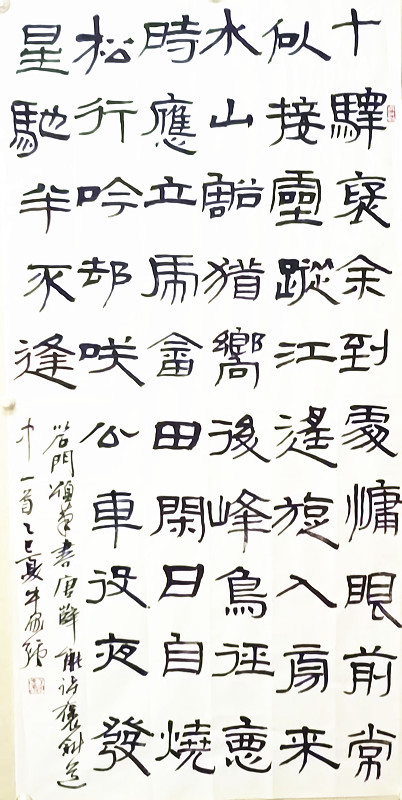 十驛褒余到處慵眼前常
似接靈蹤江遙旋入旁来
水山豁猶嚮後峰鳥徑惡
時應立虎畬田閑日自燒
松行吟却咲公車役夜發
星馳半不逢
石門頌筆書唐薛能詩褒斜道
中一首乙巳夏牛